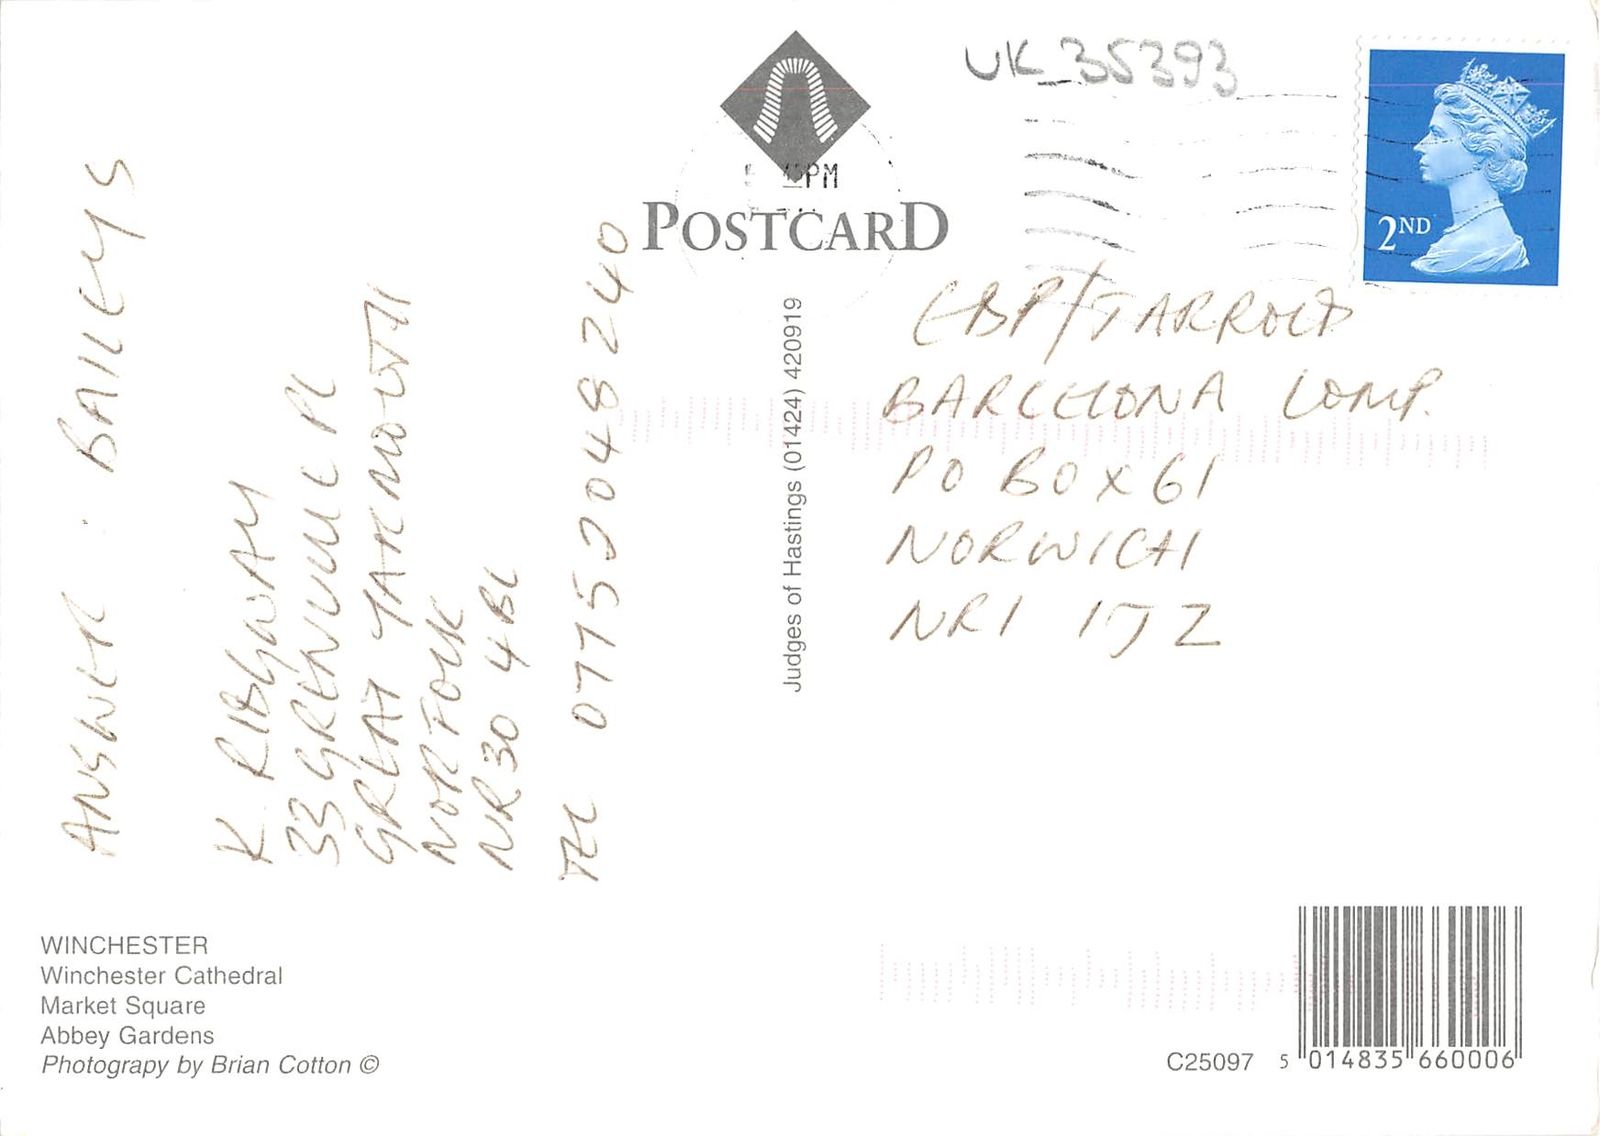 ANSWER : BAILEYS
K RIDGWAY
33 GRENVILLE PL
GREAT YARMOUTH
NORFOLK
NR30 4BL
TEL 07752048240
WINCHESTER
Winchester Cathedral
Market Square
Abbey Gardens
Photograpy by Brian Cotton ©
PM
POSTCARD
Judges of Hastings (01424) 420919
UK_35393
2ND
EDP/JARROLD
BARCELONA COMP.
PO BOX 61
NORWICH
NR1 1JZ
C25097
5 014835 660006